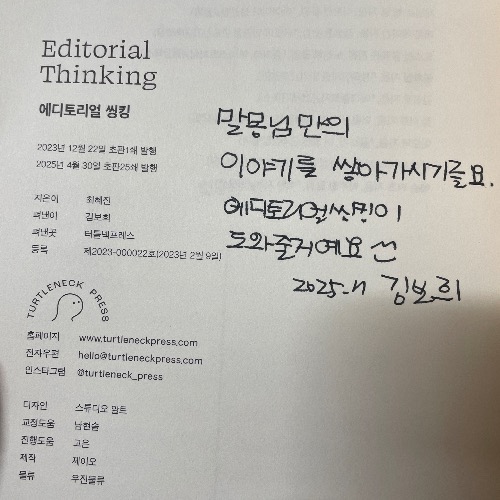 Editorial
Thinking
에디토리얼 씽킹
2023년 12월 22일 초판1쇄 발행
2025년 4월 30일 초판25쇄 발행
지은이 최혜진
펴낸이 김보희
펴낸곳 터틀넥프레스
등록 제2023-000022호(2023년 2월 9일)
TURTLENECK PRESS
홈페이지 www.turtleneckpress.com
전자우편 hello@turtleneckpress.com
인스타그램 @turtleneck_press
디자인 스튜디오 맙트
교정도움 남현솔
진행도움 고은
제작 제이오
물류 우진물류
말몽님 만의
이야기를 쌓아가시기를요.
에디토리얼씽킹이
도와줄거예요
2025. 김보희